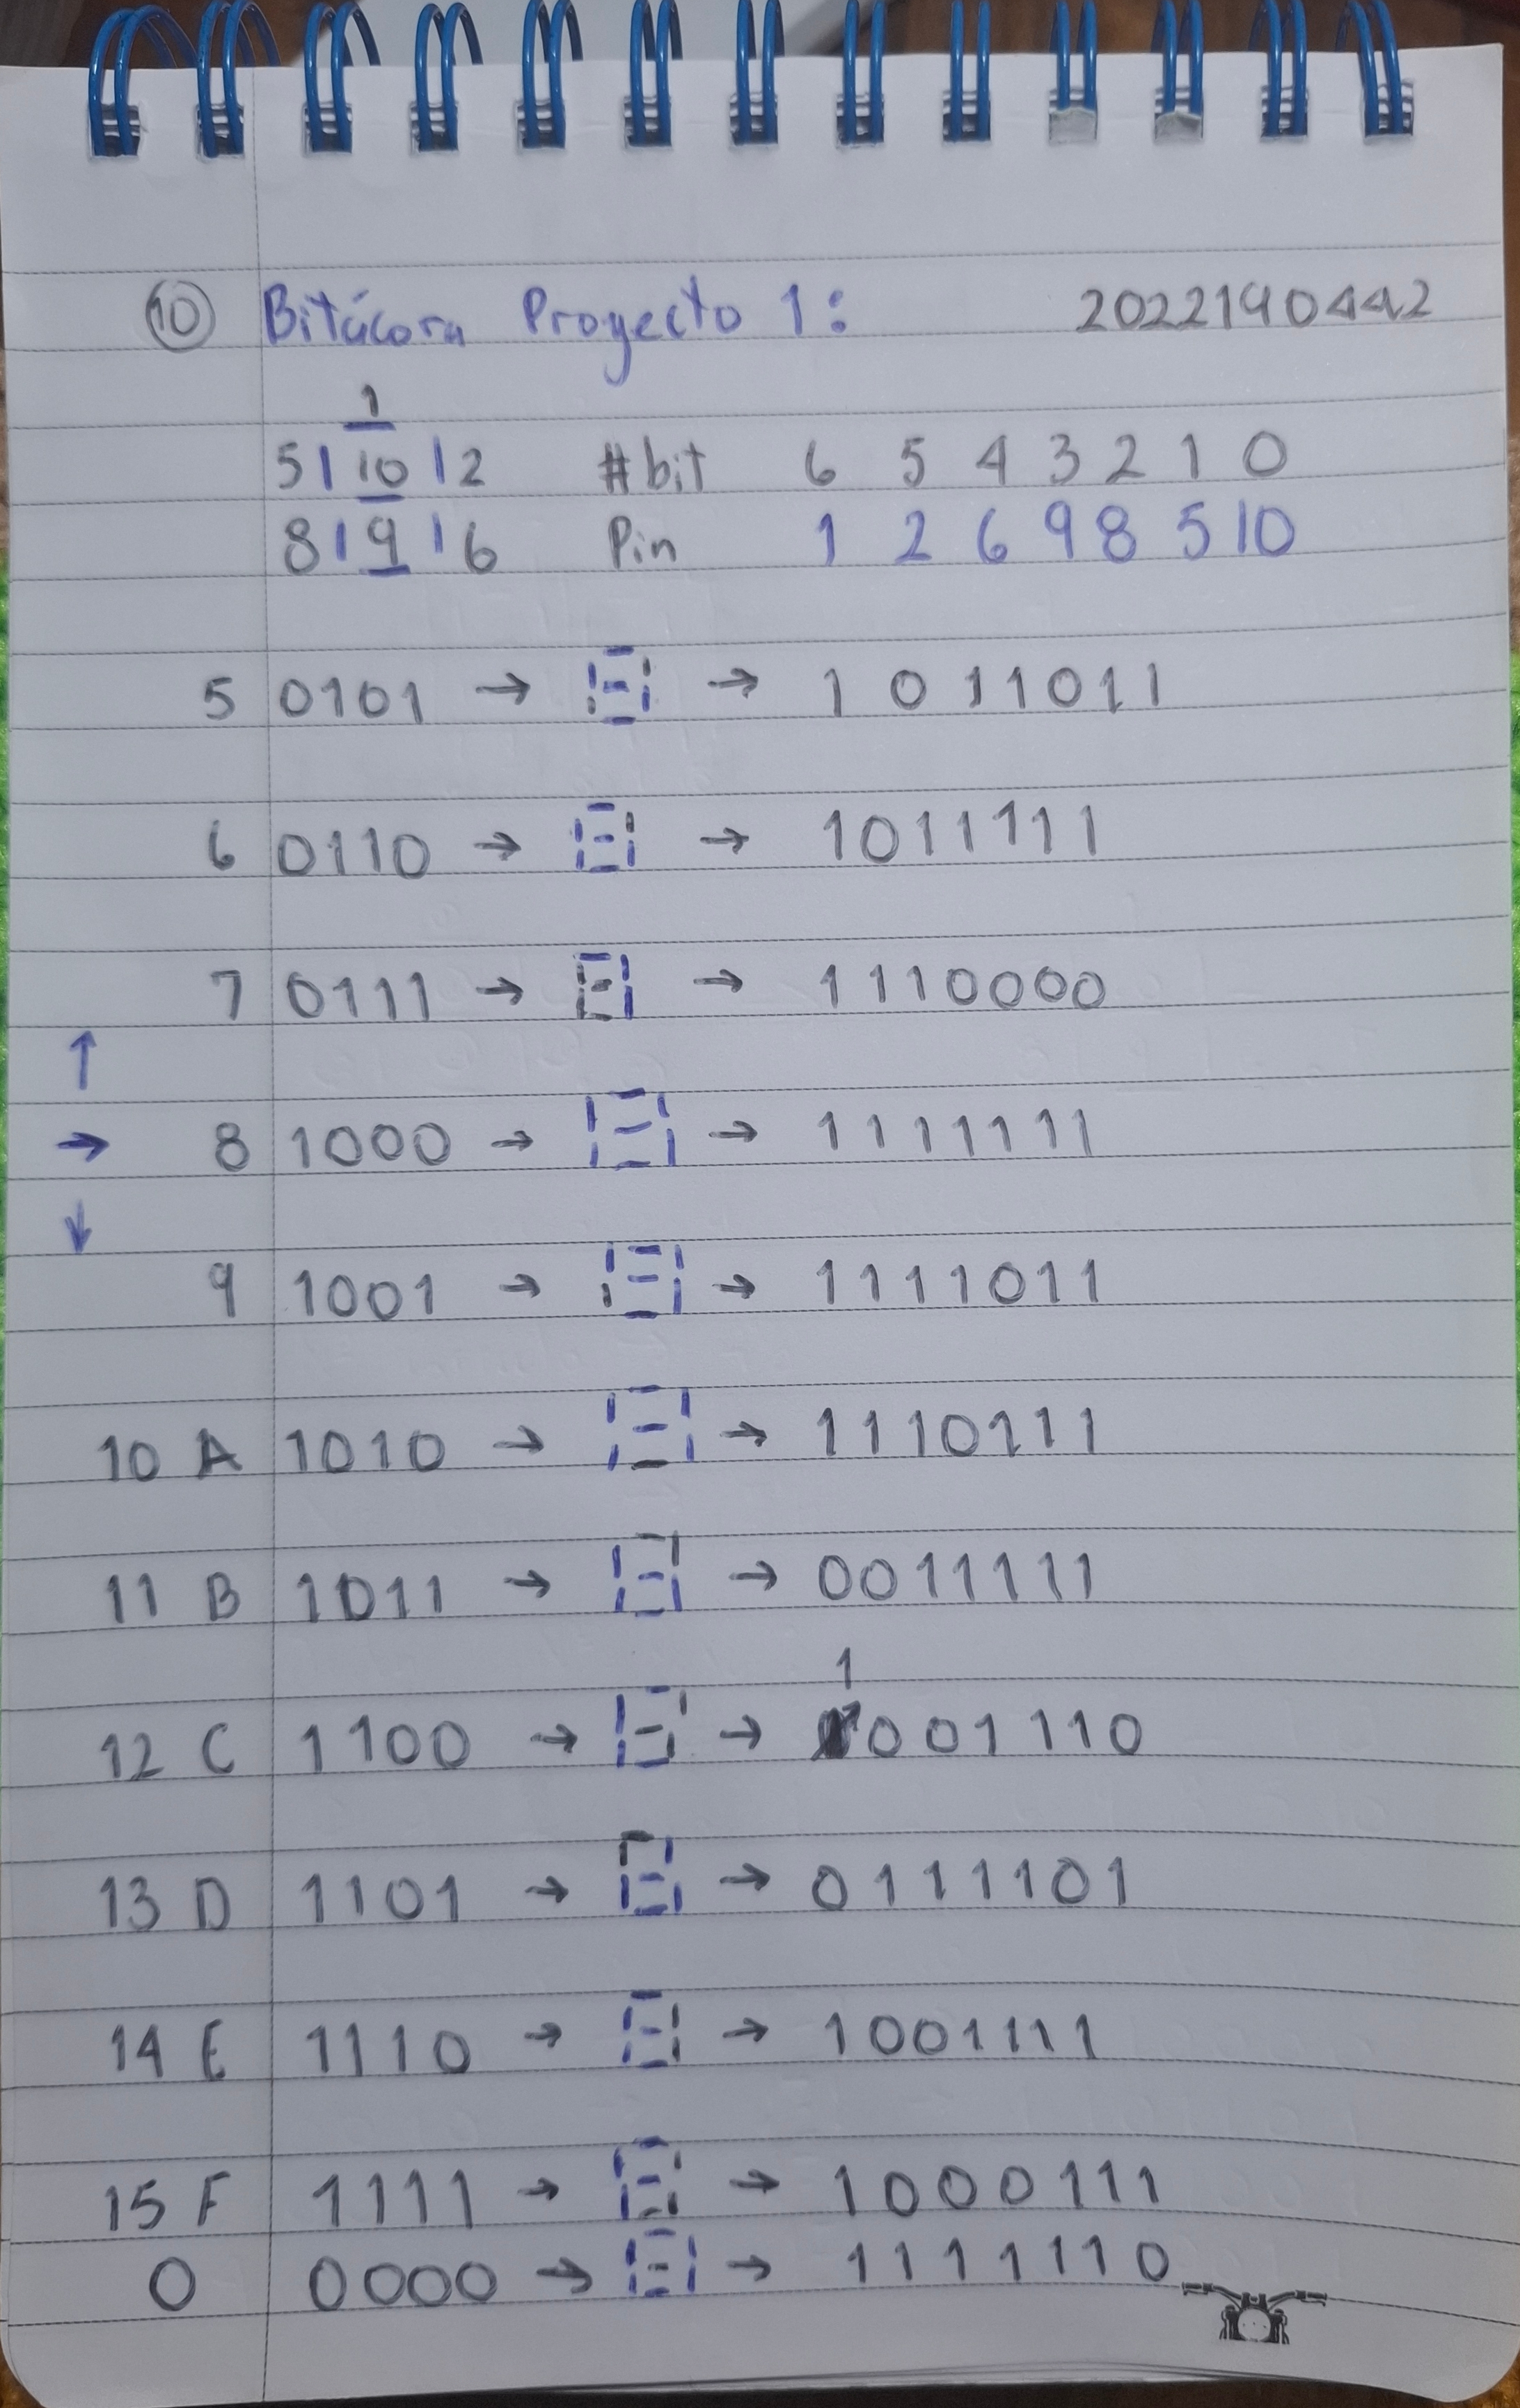 10 Bitácora Proyecto 1: 2022190442
1
5 10 2 #bit 6 5 4 3 2 1 0
8 9 6 Pin 1 2 6 9 8 5 10
5 0101 → → 1011011
6 0110 → → 1011111
7 0111 → → 1110000
↑
→ 8 1000 → → 1111111
↓
9 1001 → → 1111011
10 A 1010 → → 1110111
11 B 1011 → → 0011111
1
12 C 1100 → → 001110
13 D 1101 → → 0111101
14 E 1110 → → 1001111
15 F 1111 → → 1000111
0 0000 → → 1111110